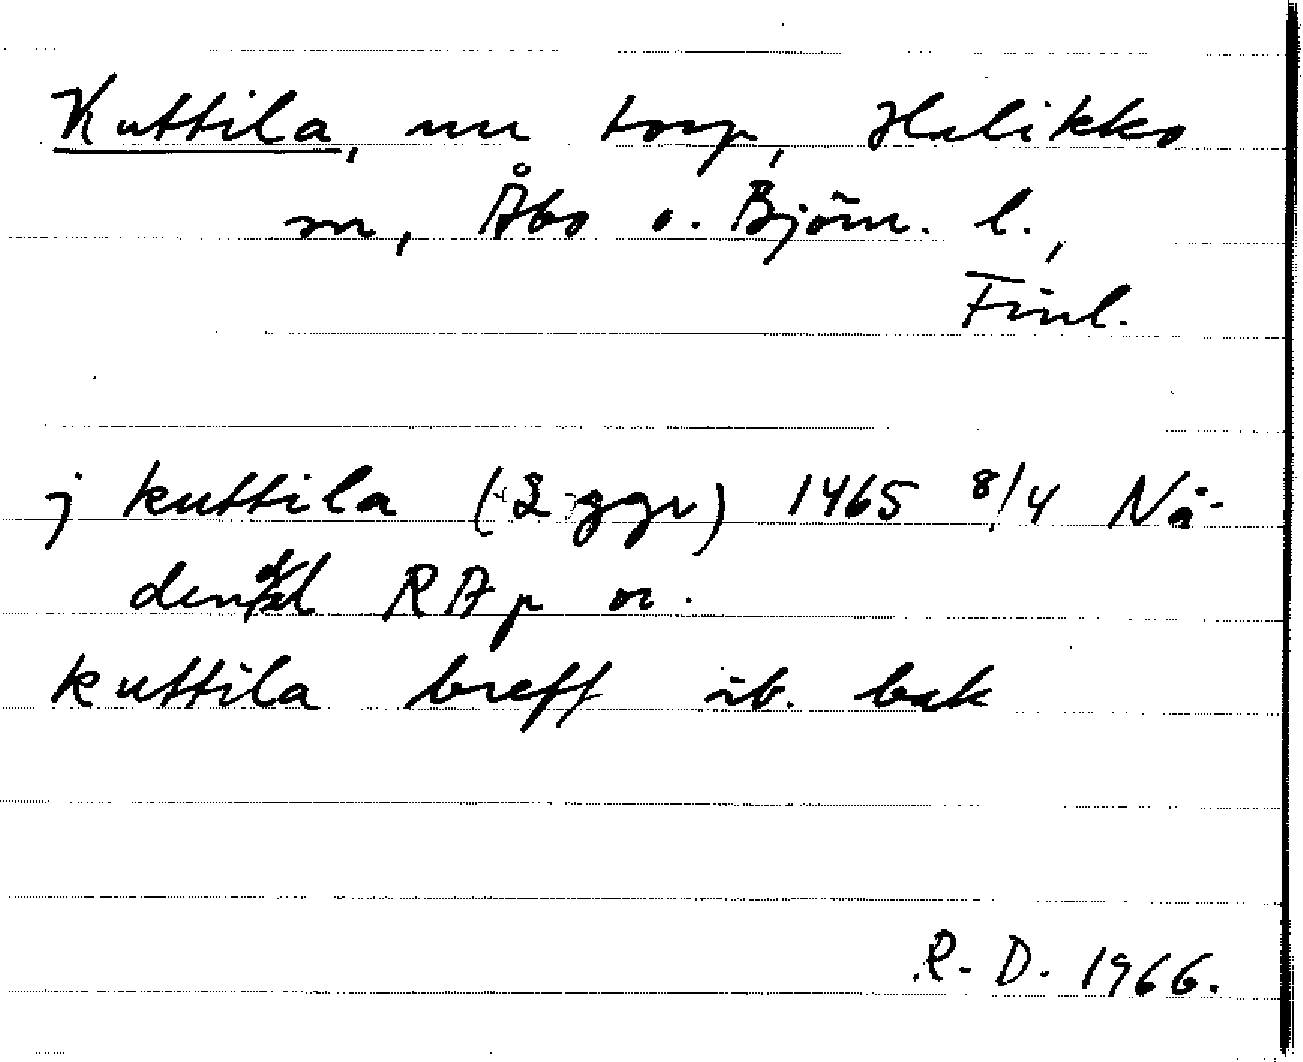 Kuttila, nu torp, Halikko
sn, Åbo o. Björn. l.,
Finl.
j kuttila (2 ggr) 1465 8/4 Nå-
dendal RAp or.
kuttila breff ib. bak
R. D. 1966.